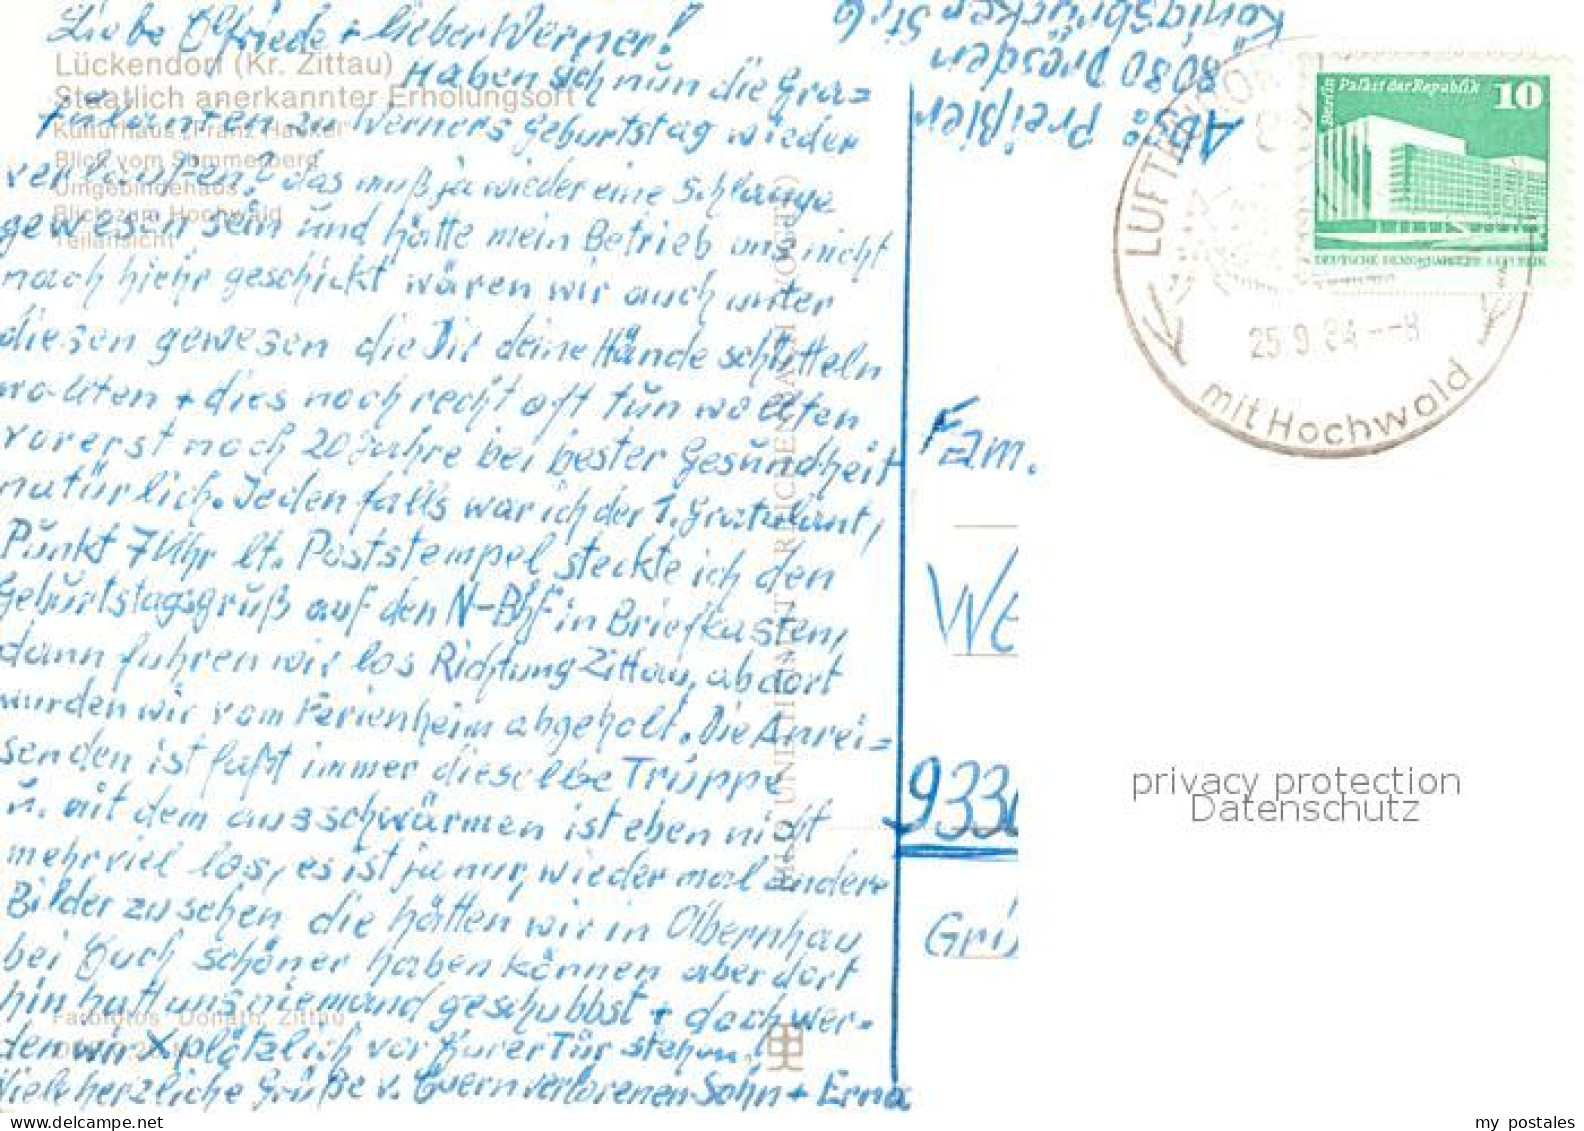 Liebe Elfriede + lieber Werner!
Lückendorf (Kr. Zittau)
Haben sich nun die Gra=
Staatlich anerkannter Erholungsort
tulanten zu Werners Geburtstag wieder
Kulturhaus „Franz Hacker“
Blick vom Sommerberg
verlaufen? das muß ja wieder eine Schlange
Umgebindehaus
Blick zum Hochwald
gewesen sein und hätte mein Betrieb uns nicht
Teilansicht
nach hiehr geschickt wären wir auch unter
diesen gewesen die Dir deine Hände schütteln
wollten + dies noch recht oft tun wollten
vorerst noch 20 Jahre bei bester Gesundheit
natürlich. Jedenfalls war ich der 1. Gratulant,
Punkt 7 Uhr lt. Poststempel steckte ich den
Geburtstagsgruß auf den N-Bhf in Briefkasten,
dann fuhren wir los Richtung Zittau, ab dort
wurden wir vom Ferienheim abgeholt. Die Anrei=
senden ist faßt immer dieselbe Truppe
u. mit dem ausschwärmen ist eben nicht
mehr viel los, es ist ja nur, wieder mal andere
Bilder zu sehen die hätten wir in Olbernhau
bei Euch schöner haben können aber dort
hin hatt uns niemand geschubbst + doch wer=
Farbfotos: Donath, Zittau
den wir X plötzlich vor Eurer Tür stehen.
Viele herzliche Grüße v. Euern verlorenen Sohn + Erna
BILD UND HEIMAT REICHENBACH (VOGTL)
Abs: Preißler
8030 Dresden
Königsbrücker Str 6
Berlin Palast der Republik 10
LUFTKURORT
25.9.84--8
mit Hochwald
Fam.
We
933
Gr
privacy protection
Datenschutz
my postales